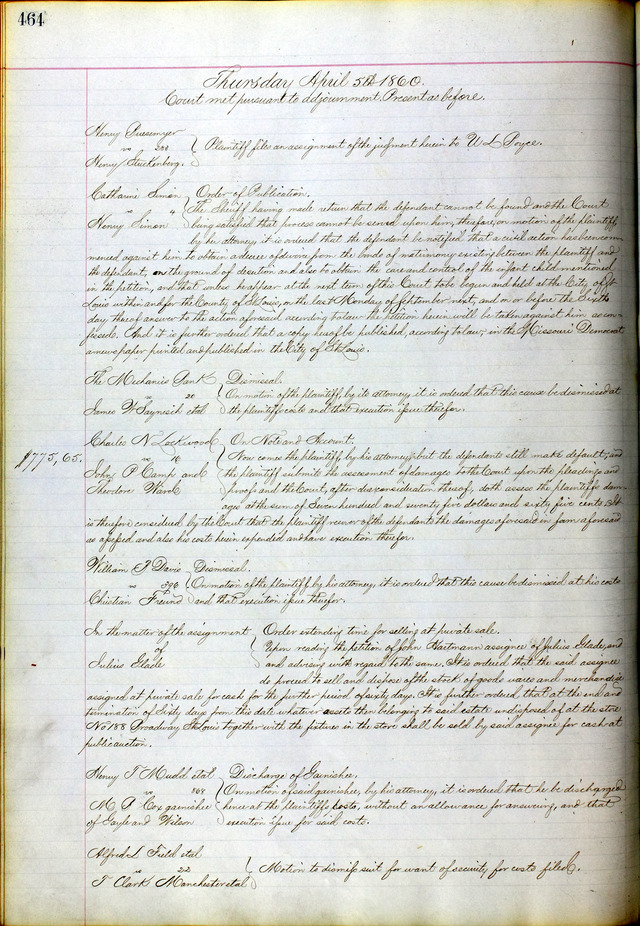 464
Thursday April 5th 1860.
Court met pursuant to adjournment. Present as before.
Henry
vs 288 Plaintiff files an assignment of the judgment herein to U L Boyce.
Henry Stuckenberg.
Catharine Simon Order of Publication.
vs 4 The Sheriff having made return that the defendant cannot be found and the Court
Henry Simon being satisfied that process cannot be served upon him, therefore, on motion of the plaintiff
by her attorney it is ordered that the defendant be notified that a civil action has been com
menced against him to obtain a decree of divorce from the bonds of matrimony existing between the plaintiff and
the defendant, on the ground of desertion and also to obtain the care and control of the infant child mentioned
in the petition, and that unless he appear at the next term of this Court to be begun and held at the City of St
Louis within and for the County of St Louis, on the last Monday of September next, and on or before the Sixth
day thereof answer to the action aforesaid according to law the petition herein will be taken against him as con
fessed. And it is further ordered that a copy hereof be published, according to law, in the Missouri Democrat
a newspaper printed and published in the City of St Louis.
The Mechanics Bank Dismissal.
vs 20 On motion of the plaintiff, by its attorney, it is ordered that this cause be dismissed at
James W et al the plaintiffs costs and that execution issue therefor.
Charles N. Lockwood On Note and Account.
$775,65. vs 16 Now comes the plaintiff by his attorney but the defendants still make default, and
P Camp and the plaintiff submits the assessment of damages to the Court upon the pleadings and
Theodore Ward proof and the Court, after due consideration thereof, doth assess the plaintiffs dam
ages at the sum of Seven hundred and seventy five dollars and sixty five cents. It
is therefore considered by the Court that the plaintiff recover of the defendants the damages aforesaid in form aforesaid
as assessed and also his costs herein expended and have execution therefor.
William J Davis Dismissal.
vs 396 On motion of the plaintiff by his attorney, it is ordered that this cause be dismissed at his costs
Christian Freund and that execution issue therefor.
In the matter of the assignment Order extending time for selling at private sale.
of Upon reading the petition of John Hartmann assignee of Julius Glade, and
Julius Glade and advising with regard to the same. It is ordered that the said assignee
do proceed to sell and dispose of the stock of goods wares and merchandize
assigned at private sale for cash for the further period of sixty days. It is further ordered that at the end and
termination of Sixty days from this date whatever assets then belonging to said estate undisposed of at the store
No 188 Broadway St Louis together with the fixtures in the store shall be sold by said assignee for cash at
public auction.
Henry T Mudd et al Discharge of Garnishee.
vs On motion of said garnishee, by his attorney, it is ordered that he be discharged
M. P. Cox garnishee hence at the plaintiffs costs, without an allowance for answering, and that
of Gayle and Wilson execution issue for said costs.
Alfred L Field et al
vs 22 Motion to dismiss suit for want of security for costs filed.
T Clark Manchester et al